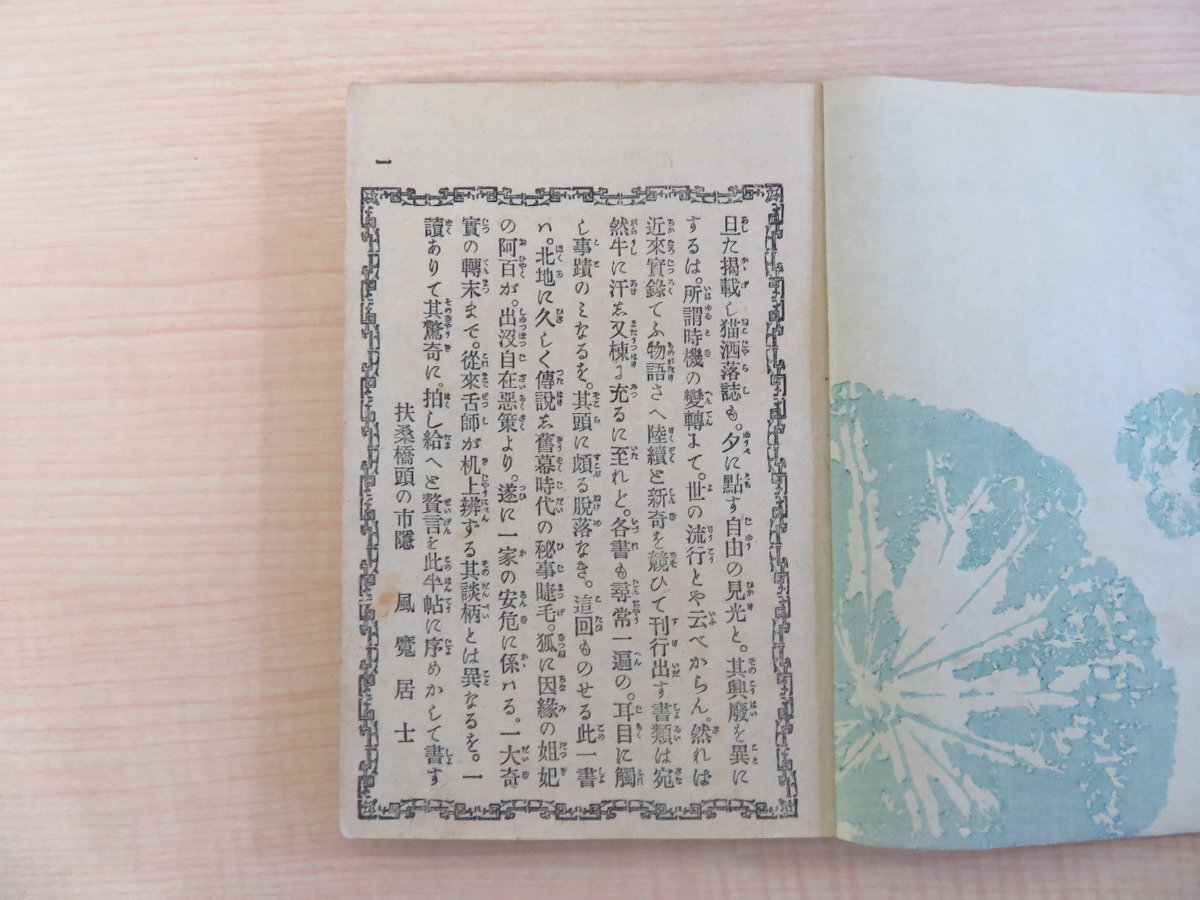 一
旦た揭載し猫洒落誌も。夕に點す自由の見光と。其興廢を異に
するは。所謂時機の變轉にて。世の流行とや云べからん。然れば
近來實錄てふ物語さへ陸續と新奇を競ひて刊行出す書類は宛
然牛に汗し又棟に充るに至れど。各書も尋常一遍の。耳目に觸
し事蹟のみなるを。其頭に頗る脫落なき。這回ものせる此一書
ハ。北地に久しく傳說し舊幕時代の秘事睫毛。狐に因緣の妲妃
の阿百が。出沒自在惡策より。遂に一家の安危に係ハる。一大奇
實の轉末まで。從來舌師が机上辨する其談柄とは異なるを。一
讀ありて其驚奇に。拍し給へと贅言を此半帖に序めかして書す
扶桑橋頭の市隱　風魔居士